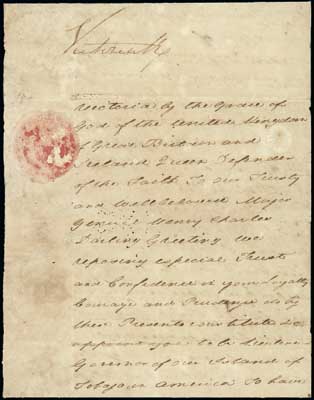 Victoria R
Victoria by the Grace of
God of the United Kingdom
of Great Britain and
Ireland Queen Defender
of the Faith To our Trusty
and Wellbeloved Major
General Henry Charles
Darling Greeting. We
reposing especial Trust
and Confidence in your Loyalty
Courage and Prudence do by
these Presents constitute &
appoint you to be Lieutenant
Governor of our Island of
Tobago in America To have